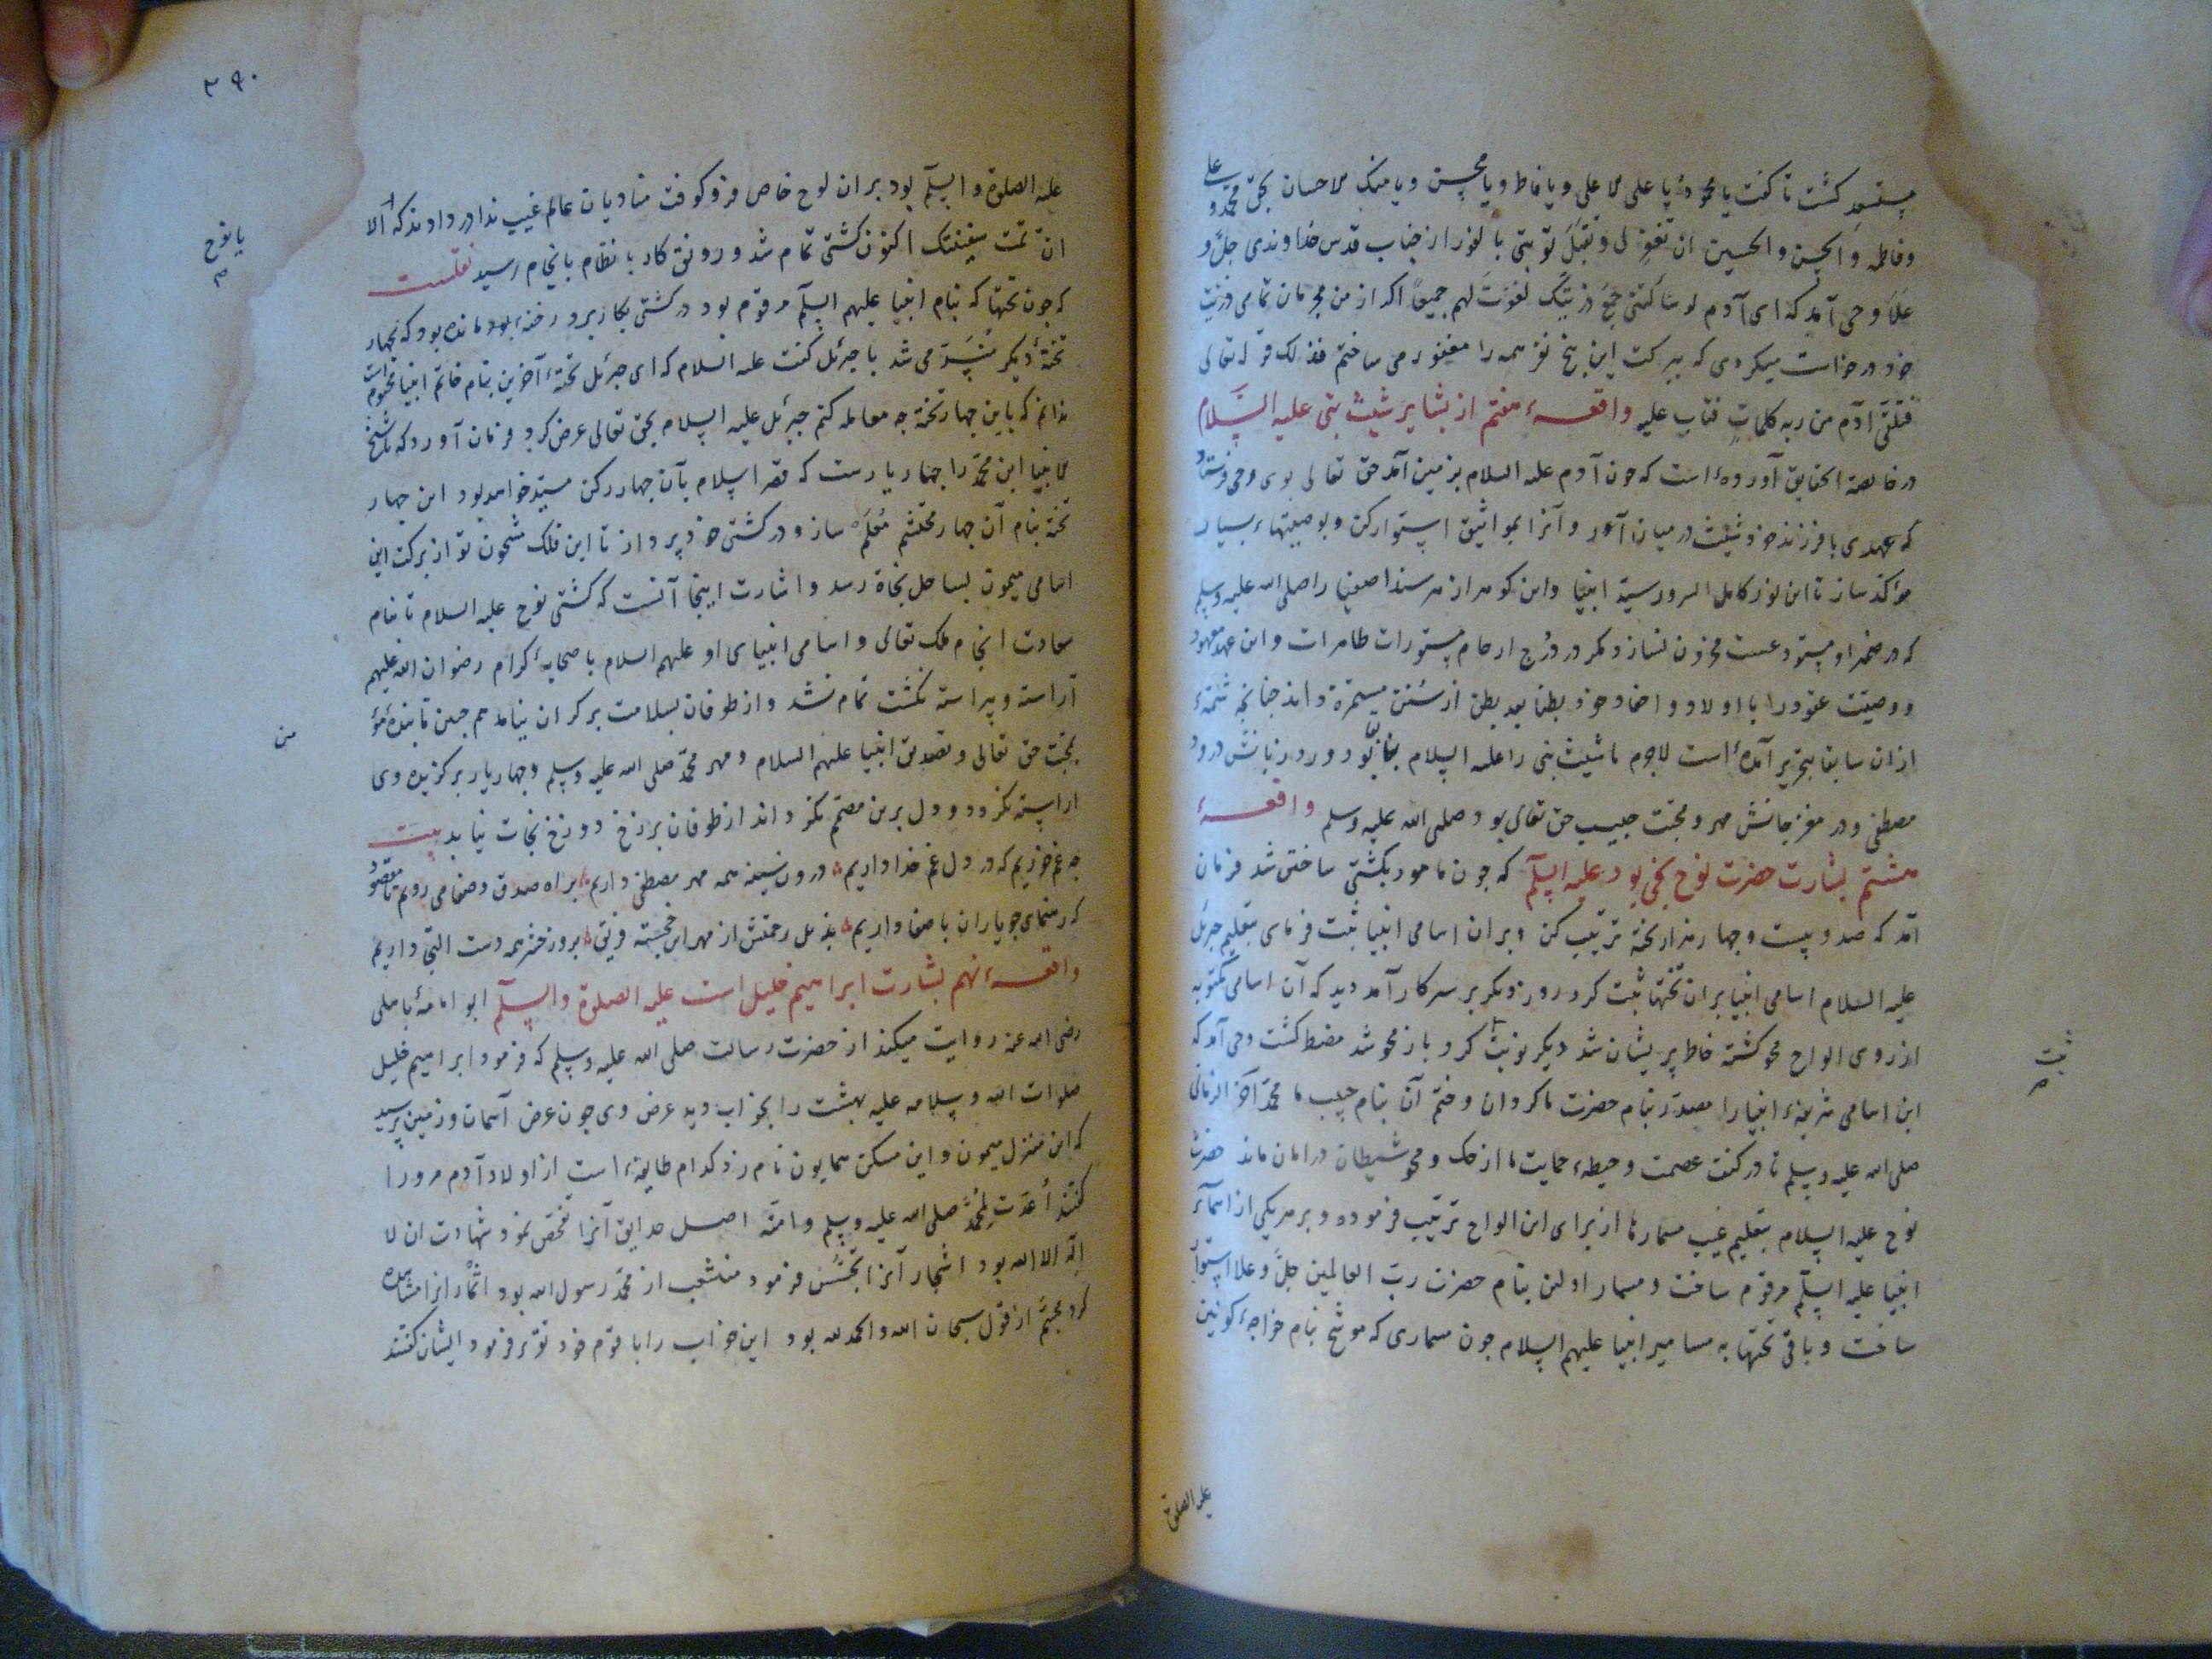 مستسعد کشت تا کفت یا محمود و یا علی الاعلی و یا فاطر و یا محسن و یا منک الاحسان بحق محمد و علی
و فاطمه و الحسن و الحسین ان تغفر لی و تقبل توبتی بالفور از جناب قدس خداوندی جل و
علا وحی آمد که ای آدم لو سألتنی جمیع ذریتک لغفرت لهم جمیعا اکر از من مجرمان تمامی ذریت
خود درخواست میکردی که ببرکت این پنج نفر همه را مغفور می ساختم فذلک قوله تعالی
فتلقی آدم من ربه کلمات فتاب علیه واقعهٔ هفتم از بشایر شیث نبی علیه السلام
در خالصة الحقایق آورده است که جون آدم علیه السلام بزمین آمد حق تعالی بوی وحی فرستاد
که عهدی با فرزند خود شیث در میان آور و آنرا بمواثیق استوار کن و بوصیتهاء بسیار
مؤکد ساز تا این نور کامل السرور سید انبیا و این کوهر از هر سند اصفیا را صلی الله علیه وسلم
که در ضمیر او مستودعست مخزون نسازد مکر در درج ارحام مستورات طاهرات و این عهد معهود
و وصیت عقود را با اولاد و احفاد خود بطنا بعد بطن از سنن مستمره داند جنانجه شمهٔ
از آن سابقا بتحریر آمده است لاجرم تا شیث نبی را علیه السلام بود ورد زبانش درود
مصطفی و در مغز جانش مهر و محبت حبیب حق تعالی بود صلی الله علیه وسلم واقعهٔ
هشتم بشارت حضرت نوح نجی بود علیه السلم که جون مامور بکشتی ساختن شد فرمان
آمد که صد و بیست و جهار هزار تخته ترتیب کن و بران اسامی انبیا ثبت فرمای بتعلیم جبرئیل
علیه السلام اسامی انبیا بران تختها ثبت کرد روز دیکر بر سر کار آمد دید که آن اسامی مکتوبه
از روی الواح محو کشته خاطر پریشان شد دیکر نوبت کرد باز محو شد مضطر کشت وحی آمد که
این اسامی شریفهٔ انبیا را مصدر بنام حضرت ما کردان و ختم آن بنام حبیب ما محمد آخر الزمان
صلی الله علیه وسلم تا در کنف عصمت و حیطهٔ حمایت ما از حک و محو شیطان در امان ماند حضرت
نوح علیه السلام بتعلیم غیب مسمارها از برای این الواح ترتیب فرموده و بر هر یکی از اسماء
انبیا علیه السلم مرقوم ساخت و مسمار اولین بنام حضرت رب العالمین جل و علا استوار
ساخت و باقی تختها به مسامیر انبیا علیهم السلام جون مسماری که موشح بنام خواجهٔ کونین
علیه الصلوة
ثبت
۳۹۰
علیه الصلوة و السلم بود بران لوح خاص فرو کوفت منادیان عالم غیب ندا در دادند که الا
ان تمت سفینتک اکنون کشتی تمام شد و رونق کار با نظام بانجام رسید نقلست
که جون تختها که بنام انبیا علیهم السلم مرقوم بود در کشتی بکار برد رخنه بود مانده بود که بجهار
تختهٔ دیکر منسد می شد با جبرئیل کفت علیه السلام که ای جبرئیل تختهٔ آخرین بنام خاتم انبیا مختوم است
ندانم که باین جهار تخته جه معامله کنم جبرئیل علیه السلام بحق تعالی عرض کرد فرمان آورد که یا شیخ
الانبیا این محمد را جهار یارست که قصر اسلام بآن جهار رکن مسید خواهد بود این جهار
تخته بنام آن جهار محتشم معلم ساز و در کشتی خود پرداز تا این فلک مشحون تو از برکت این
اسامی میمون بساحل نجاة رسد و اشارت اینجا آنست که کشتی نوح علیه السلام تا بنام
سعادت انجام ملک تعالی و اسامی انبیای او علیهم السلام با صحابهٔ کرام رضوان الله علیهم
آراسته و پیراسته نکشت تمام نشد و از طوفان بسلامت بر کران نیامد هم جنین تا بندهٔ مؤ
من
بمحبت حق تعالی و تصدیق انبیا علیهم السلام و مهر محمد صلی الله علیه وسلم و جهار یار برکزیده وی
اراسته نکردد و دل برین مصمم نکرداند از طوفان برزخ دوزخ نجات نیابد بیت
جه غم خوریم که در دل غم خدا داریم درون سینه همه مهر مصطفی داریم براه صدق و صفا می رویم تا مقصود
که رهنمای جو یاران باصفا داریم بذیل رحمتش از مهر این خجسته فریق بروز حشر همه دست التجی داریم
واقعهٔ نهم بشارت ابراهیم خلیل است علیه الصلوة و السلم ابو امامهٔ باهلی
رضی الله عنه روایت میکند از حضرت رسالت صلی الله علیه وسلم که فرمود ابراهیم خلیل
صلوات الله و سلامه علیه بهشت را بخواب دید عرض وی جون عرض آسمان و زمین پرسید
که این منزل میمون و این مسکن همایون نام زد کدام طایفه است از اولاد آدم مرورا
کفتند أعدت لمحمد صلی الله علیه وسلم و امته اصل حدایق آنرا تفحص نمود شهادت ان لا
اله الا الله بود اشجار آنرا تجسس فرمود منشعب از محمد رسول الله بود اثمار آنرا مشاهده
کرد مجسم از قول سبحان الله و الحمد لله بود این خواب را با قوم خود تقریر فرمود ایشان کفتند
یا نوح